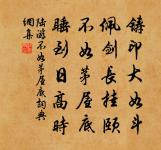 鑄印大如斗
佩劍長拄頤
不如茅屋底
睡到日高時
陸游不如茅屋底詞典
網集